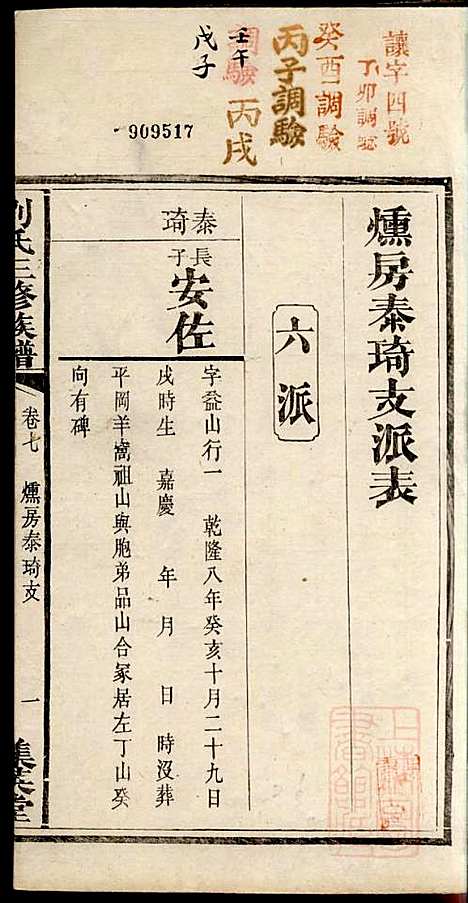 讓字四號
丁卯調驗
癸酉調驗
丙子調驗
調驗 丙戌
壬午
戊子
909517
燻房泰琦支派表
六派
泰琦
長子
安佐
字益山行一 乾隆八年癸亥十月二十九日
戌時生 嘉慶 年 月 日 時沒葬
平岡羊窩祖山與胞弟品山合冢居左丁山癸
向有碑
劉氏三修族譜
卷七 燻房泰琦支
一
集英堂